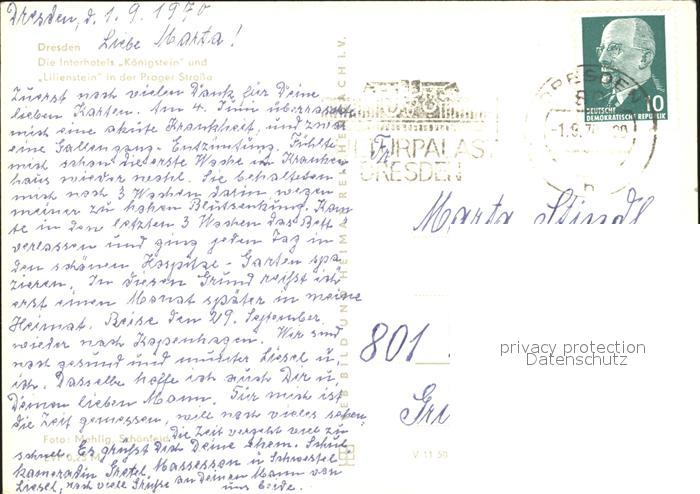 Dresden, d. 1.9.1970
Liebe Marta!
Dresden
Die Interhotels „Königstein" und
„Lilienstein" in der Prager Straße
Zuerst noch vielen Dank für Deine
lieben Karten. Am 4. Juni überraschte
mich eine akute Krankheit, und zwar
eine Gallengang-Entzündung. Fühlte
mich schon die erste Woche im Kranken
haus wieder Sie behielten
mich noch 3 Wochen darin wegen
meiner zu hohen Blutsenkung. Konn
te in den letzten 3 Wochen das Bett
verlassen und ging jeden Tag in
den schönen Hospitze-Garten spa
zieren. In diesen Grund reißt ich
erst einen Monat später in meine
Heimat. Reise den 29. September
wieder nach Kopenhagen. Wir sind
noch gesund und munter Liesel u.
ich. Dasselbe hoffe ich auch Dir u.
Deinen lieben Mann. Für mich ist
die Zeit gemessen, will noch vieles sehen,
die Zeit vergeht viel zu
Foto: Mehlig, Schönfeld
schnell. Es grüßt Dich Deine Schul
kameradin Gretel, u Schwester
Liesel, noch viele Grüße an Deinen Mann von
uns beide.
BILD UND HEIMAT REICHENBACH I. V.
V 11 50
KULTURPALAST
DRESDEN
DRESDEN
-1.9.70
h
DEUTSCHE
DEMOKRATISCHE REPUBLIK
10
Fr.
Marta Stindl
801
Gri
privacy protection
Datenschutz